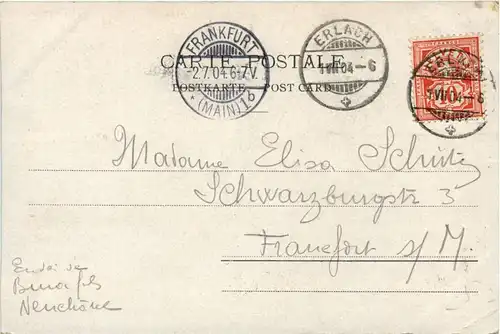 CARTE POSTALE
POSTKARTE POST CARD
FRANKFURT
2.7.04.6-7V.
* (MAIN) 1 *
ERLACH
1 VII 04-6
FRANCO
10
ERLACH
1 VII 04-6
Madame Elisa Schütz
Schwarzburgstr 3
Francfort s/M.